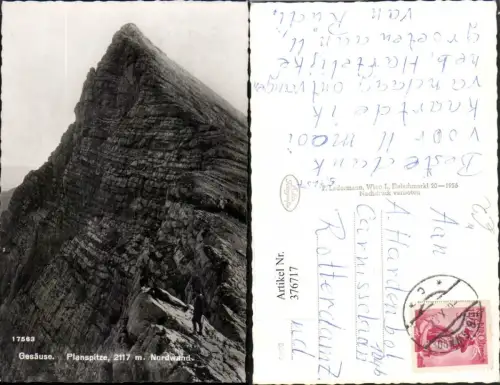 17563
Gesäuse. Planspitze, 2117 m. Nordwand.
Beste dank
voor U mooi
kaart die ik
vandaag ontvangen
heb, Hartelijke
groeten aan U
van Rudi.
P. Ledermann, Wien I, Fleischmarkt 20—1956
Nachdruck verboten
Artikel Nr.
376717
Aan
A. Hardenbol
Carnisselaan
Rotterdam Z.